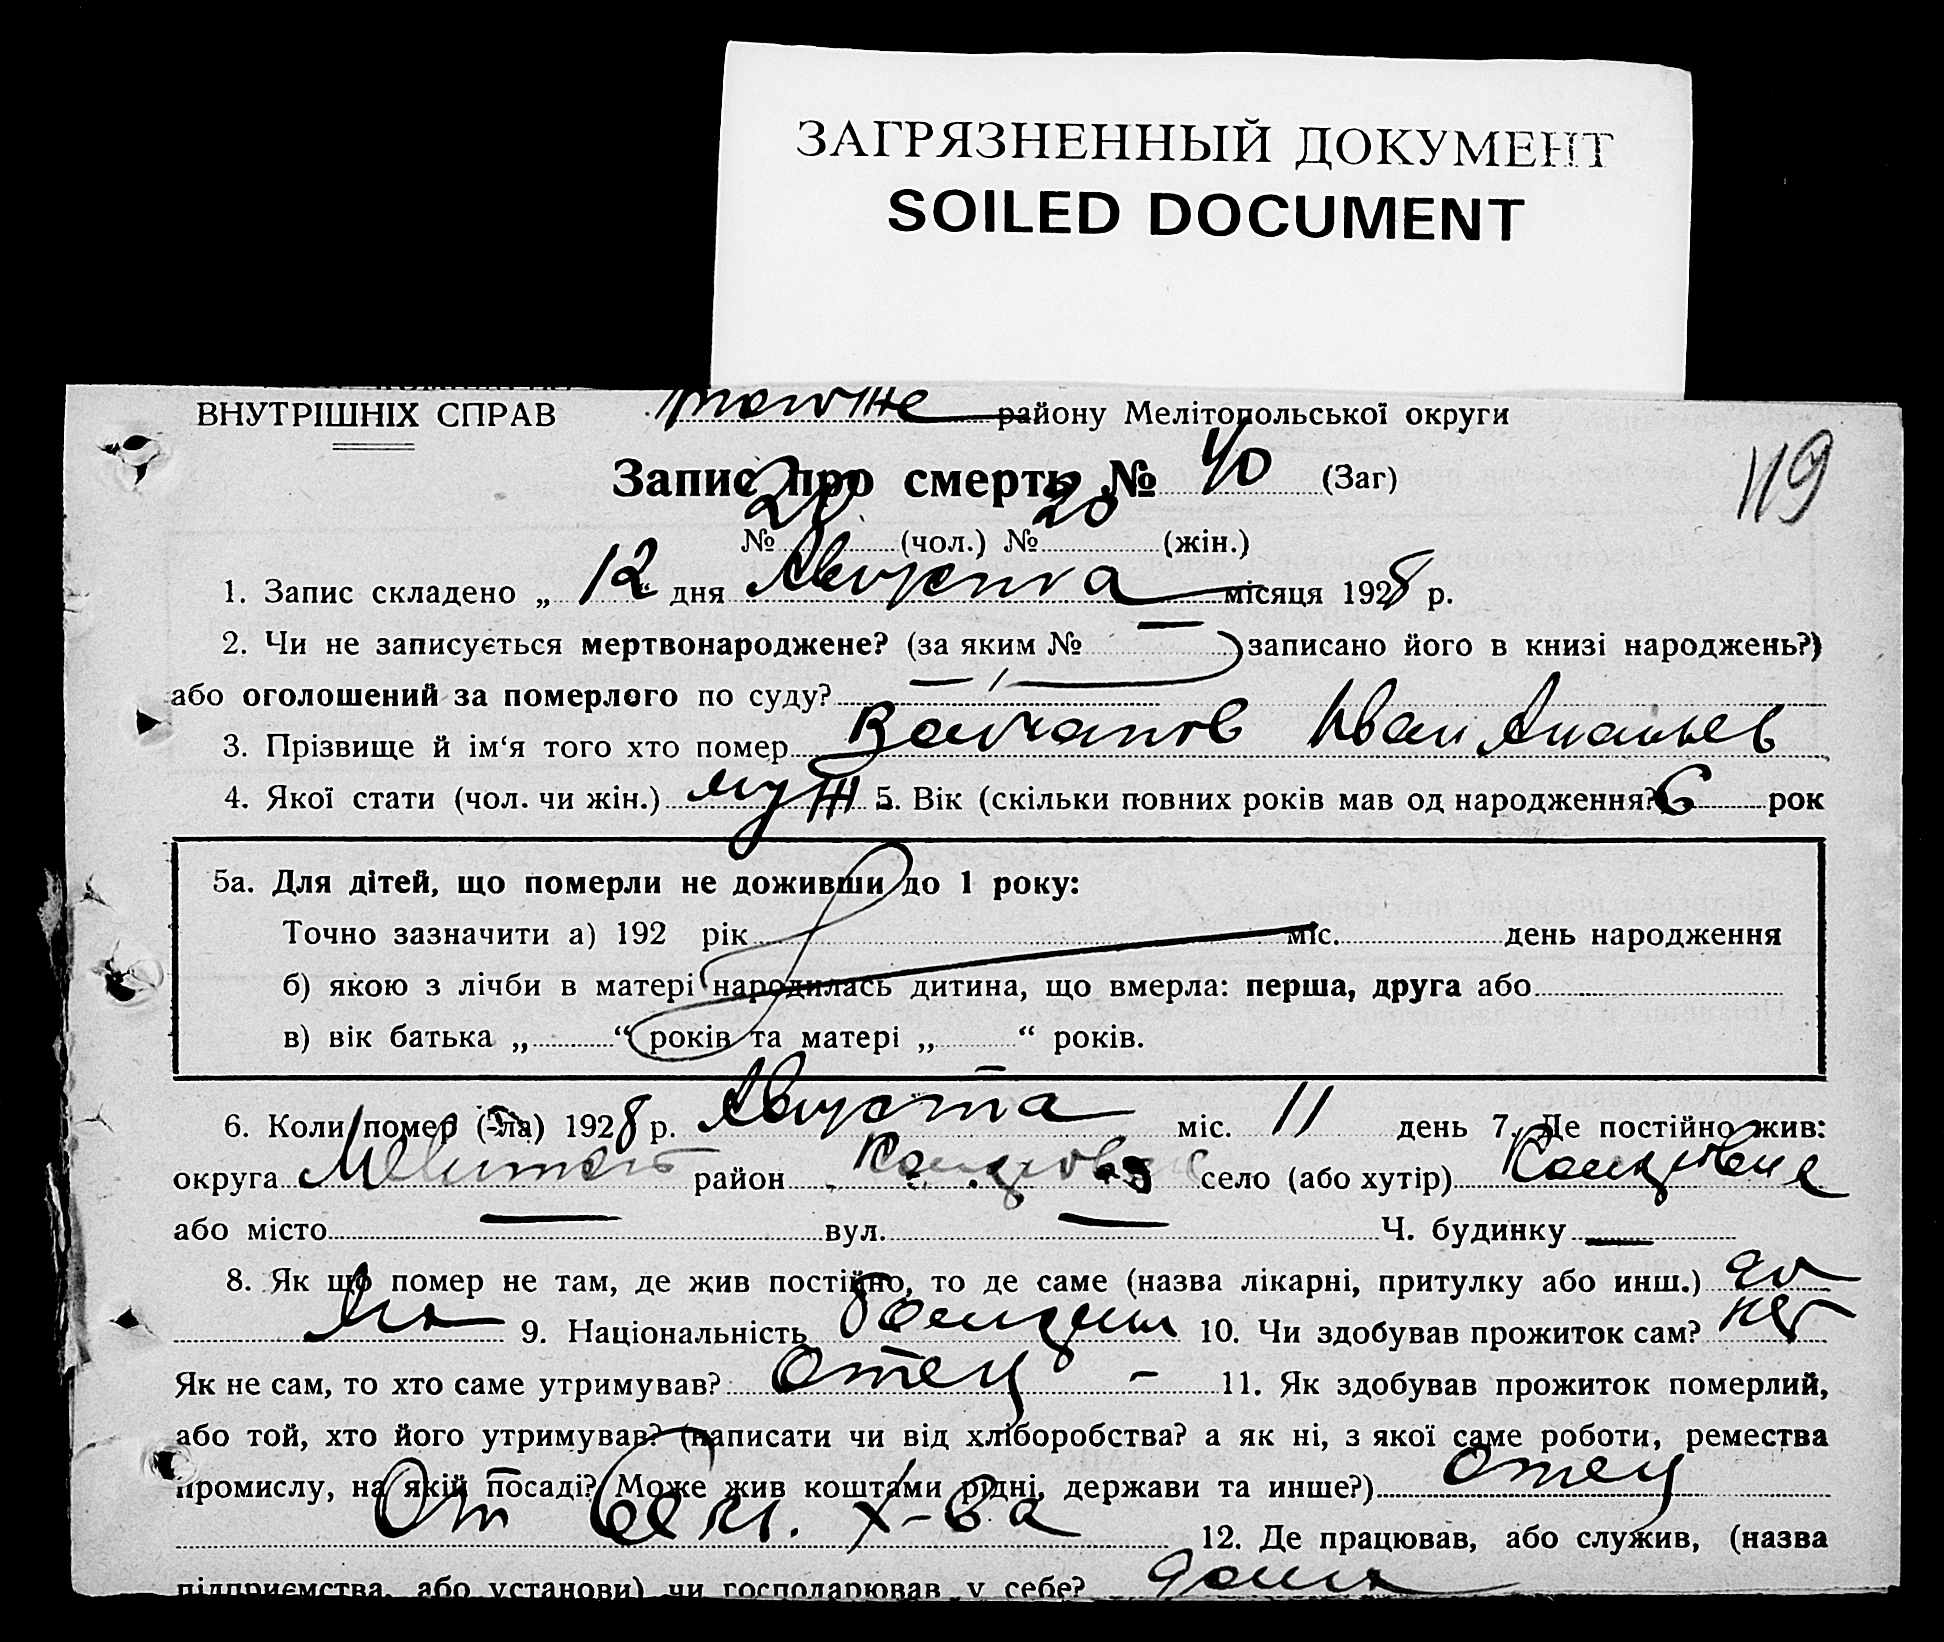 ЗАГРЯЗНЕННЫЙ ДОКУМЕНТ
SOILED DOCUMENT
ВНУТРІШНІХ СПРАВ району Мелітопольської округи
119
Запис про смерть № 40 (Заг)
№ 20 (чол.) № 20 (жін.)
1. Запис складено „ 12 “ дня Августа місяця 1928 р.
2. Чи не записується мертвонароджене? (за яким № — записано його в книзі народжень?)
або оголошений за померлого по суду? —
3. Прізвище й ім‘я того хто помер Иван Ананьев
4. Якої стати (чол. чи жін.) муж 5. Вік (скільки повних років мав од народження? 6 рок
5а. Для дітей, що померли не доживши до 1 року:
Точно зазначити а) 192 рік міс. день народження
б) якою з лічби в матері народилась дитина, що вмерла: перша, друга або
в) вік батька „ “ років та матері „ “ років.
6. Коли помер (-ла) 1928 р. Августа міс. 11 день 7. Де постійно жив:
округа район село (або хутір)
або місто — вул. — Ч. будинку —
8. Як що помер не там, де жив постійно, то де саме (назва лікарні, притулку або инш.) до
ма 9. Національність 10. Чи здобував прожиток сам? нет
Як не сам, то хто саме утримував? отец — 11. Як здобував прожиток померлий,
або той, хто його утримував? (написати чи від хліборобства? а як ні, з якої саме роботи, ремества
промислу, на якій посаді? Може жив коштами рідні, держави та инше?) отец
От х-ва 12. Де працював, або служив, (назва
підприємства, або установи) чи господарював у себе? дома